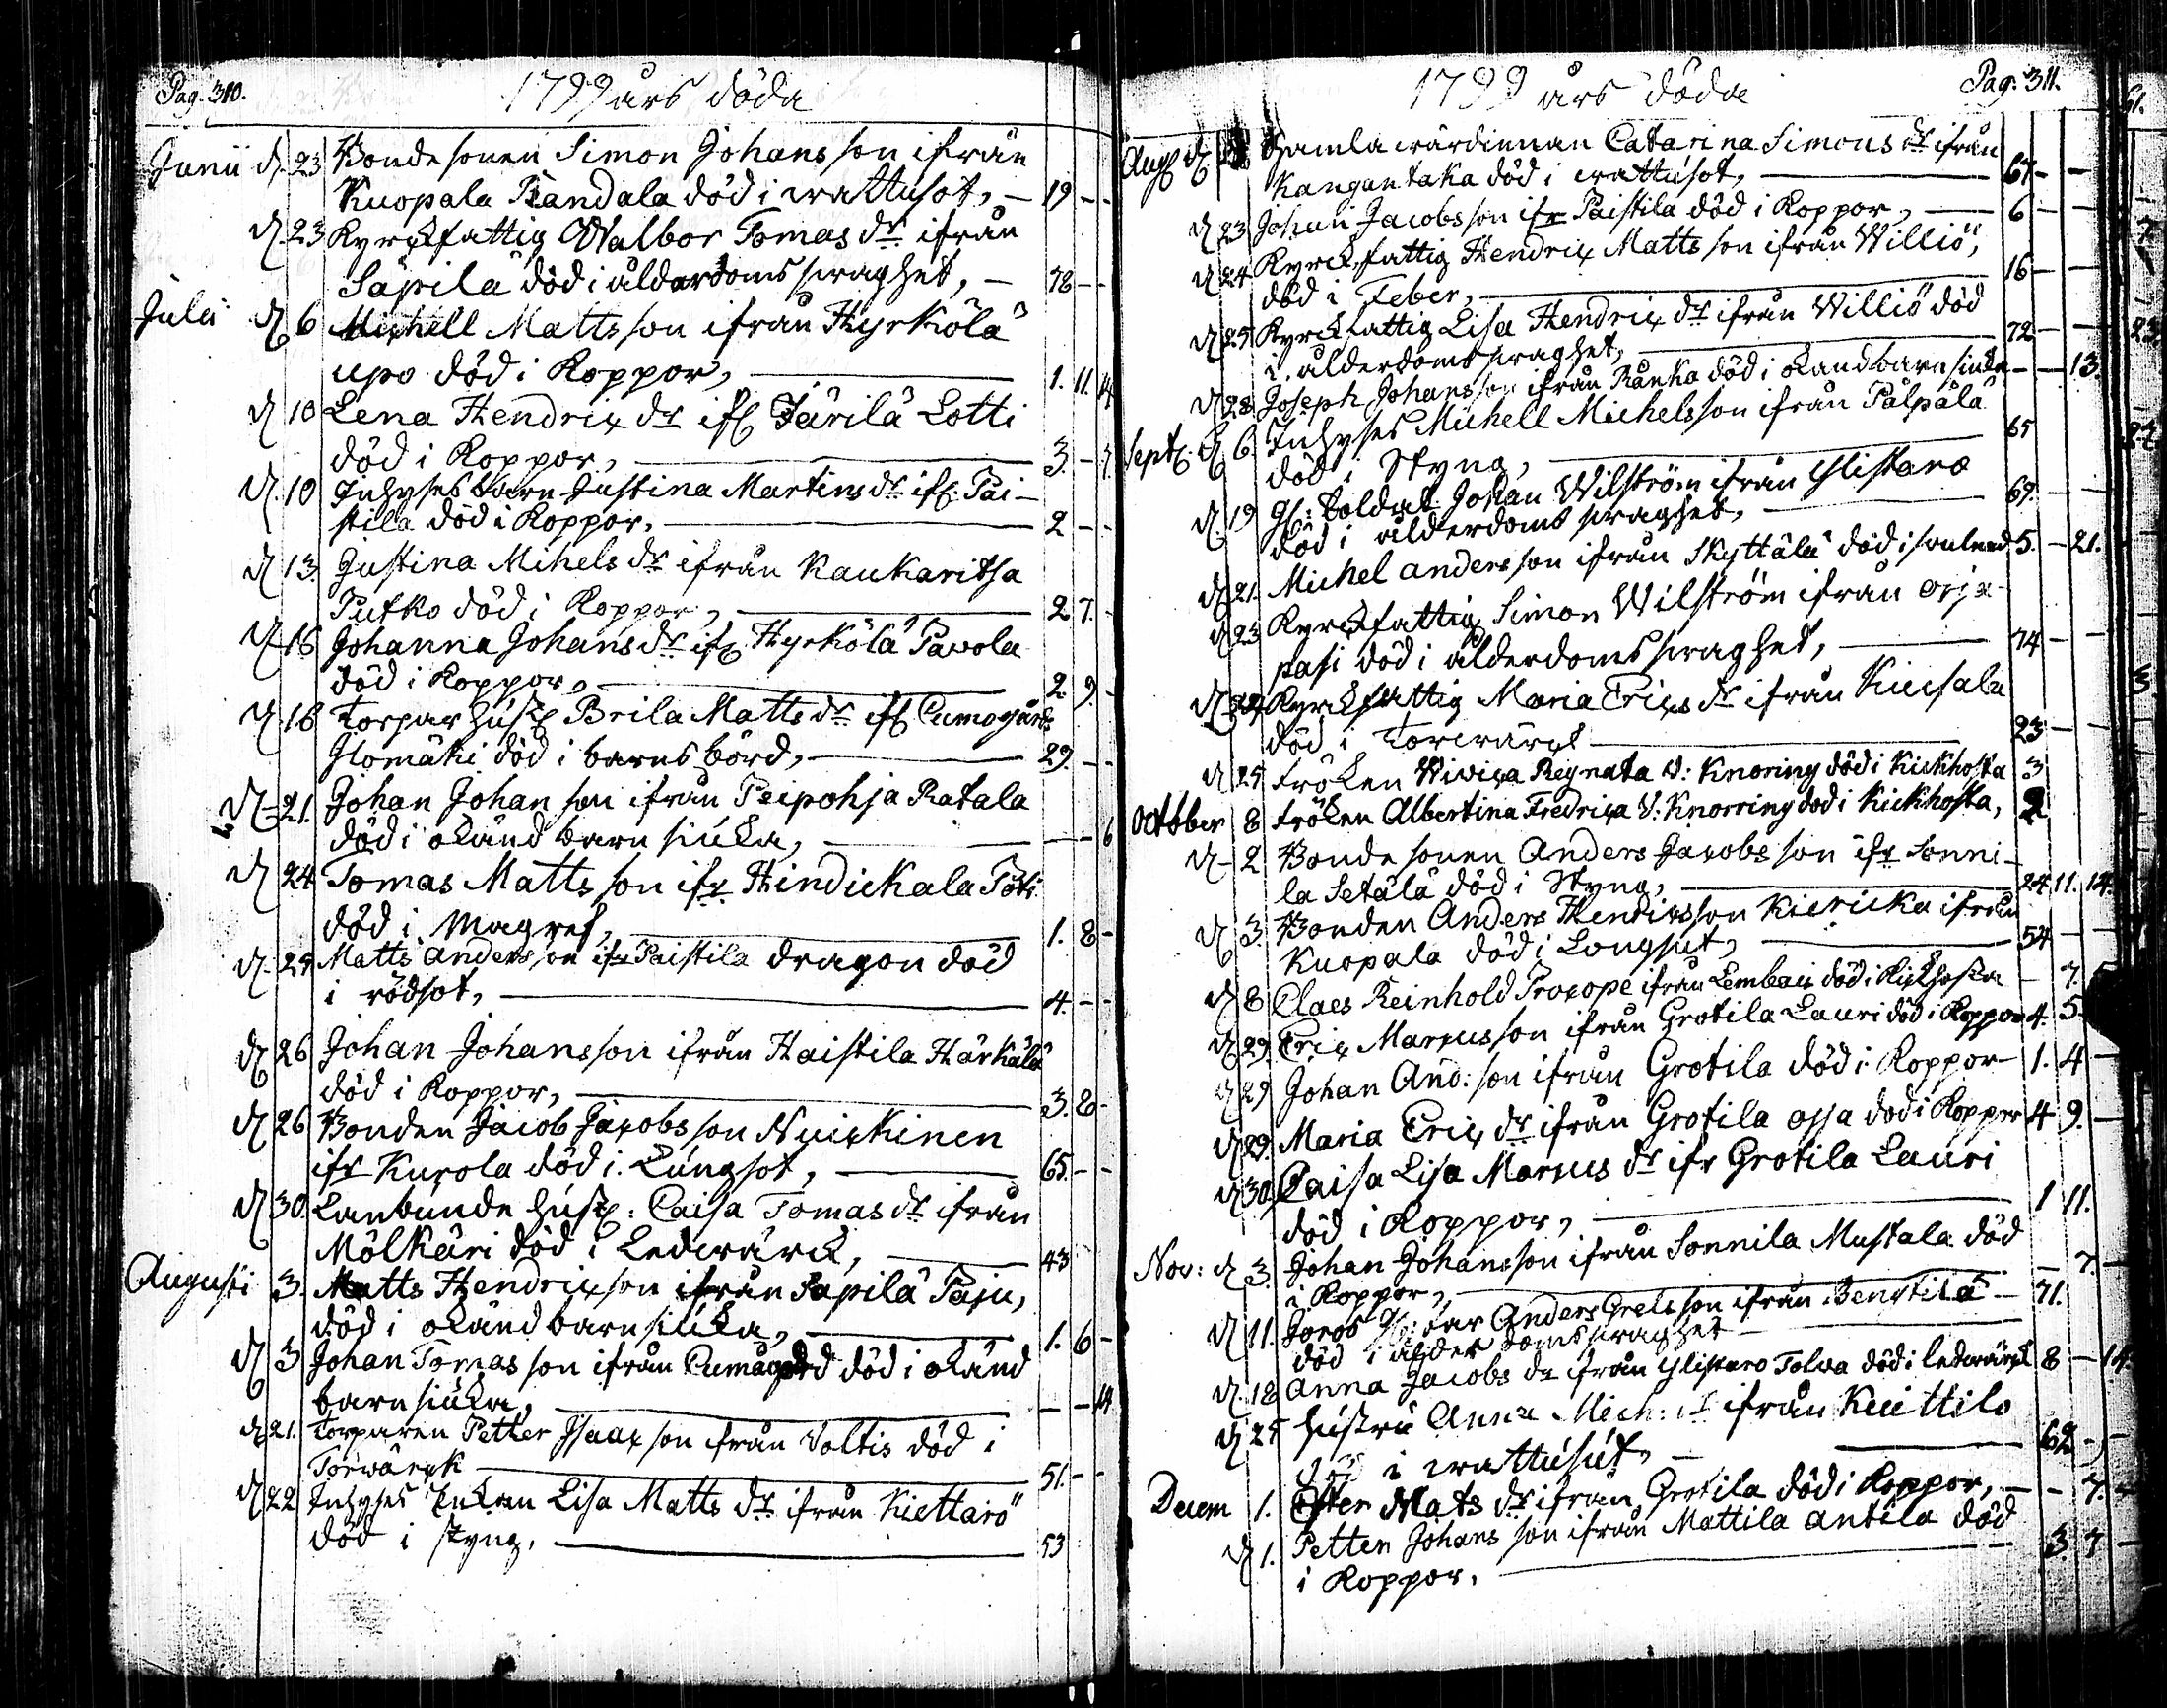 Pag. 310.
1799 års döda
Junii d. 23 Bondesonen Simon Johansson ifrån
Kuopala Pandala död i wattusot, — 19 - -
d. 23 Kyrckfattig Walbor Tomas dr. ifrån
Säpilä död i ålderdoms swaghet, — 78 - -
Julii d 6 Michell Mattsson ifrån Hyrkölä
upo död i Koppor, — 1. 11. 14
d 10 Lena Hendrix dr ifr Järilä Lotti
död i Koppor, — 3. - 7.
d. 10 Inhyses barn Justina Martins dr ifr. Pai-
stila död i Koppor. — 2 - -
d 13. Justina Mihels dr ifrån Kaukaritsa
Putko död i Koppor, — 2 7. -
d. 16 Johanna Johans dr ifr Hyrkölä Pavola
död i Koppor, — 2 9. -
d. 16 Torpar hustr Brita Matts dr ifr Cumogårds
Ilomäki död i barnsbörd, — 29. - -
d. 21. Johan Johanson ifrån Peipohja Ratala
död i okänd barnsiuka, — - - 6
d 24 Tomas Mattsson ifr Hindickala Töti
död i Magref, — 1. 8 -
d. 25 Matts Andersson ifr Paistila dragon död
i rödsot, — 4. - -
d 26 Johan Johansson ifrån Haistila Härkälä
död i Koppor, — 3. 8 -
d 26 Bonden Jacob Jacobsson Nuickinen
ifr Kurola död i Lungsot, — 65. - -
d 30. Lanbonde hustr: Caisa Tomas dr ifrån
Mölkäri död i Ledwärck, — 43
Augusti 3. Matts Hendrixson ifrån Säpilä Paju,
död i okänd barnsiuka, — 1. 6 -
d 3 Johan Tomasson ifrån Cumogård död i okänd
barnsiuka, — - - 14
d 21. Torparen Petter Isaaxson ifrån Voltis död i
Torwärck — 51. - -
d 22 Inhyses Enkan Lisa Matts dr ifrån Kiettarö
död i styng. — 53
Pag. 311.
1799 års döda
Aug d Gamla wärdinnan Catarina Simons dr ifrån
Kangantaka död i wattusot, — 67 - -
d 23 Johan Jacobsson ifr Paistila död i Koppor, — 6 -
d 24 Kyrckfattig Hendrix Mattsson ifrån Williö,
död i Feber, — 16 - -
d 25 Kyrckfattig Lisa Hendrix dr ifrån Williö död
i ålderdomsswaghet, — 72 - -
d 28 Joseph Johansson ifrån Ränkö död i okand barnsiuka - - 13.
Sept. d 6. Inhyses Michell Michelsson ifrån Pälpälä
död i Styng, — 65
d. 19 Gl: Soldat Johan Wilström ifrån Ylistaro
död i ålderdoms swaghet, — 69. - -
d 21. Michel anders son ifrån Skyttälä död i 5. - 21.
d 23 Kyrckfattig Simon Wilström ifrån
pasi död i ålderdomsswaghet, — 74 - -
d Kyrckfattig Maria Erixs dr ifrån Kiusala
död i Torwärck — 23 - -
d 25 Fröken Wivica Regnata V: Knoring död i Kickhosta 3
October 8 Fröken Albertina Fredrica V: Knorring död i Kickhosta, 2
d - 2 Bonde sonen Anders Jacobsson ifr Sonni-
la Setälä död i Styng, — 24 11. 14.
d 3. Bonden Anders Hendixsson Kiericka ifrån
Kuopala död i Longsut, — 54 - -
d 8 Claes Reinhold Procopé ifrån Lembois död i Kickhosta - 7.
d 29. Eric Marcusson ifrån Grotila Lauri död i Koppor 4. 5
d 29 Johan And: son ifrån Grotila död i Koppor - 1. 4 -
d 29. Maria Erix dr ifrån Grotila ossa död i Koppor 4 9. -
d 30 Caisa Lisa Marcus dr ifr Grotila Lauri
död i Koppor, — 1 11.
Nov: d 3. Johan Johansson ifrån Sonnila Mustala död
i Koppor, — - 7. -
d 11. Anders Grelsson ifrån Bengtilä - 71.
död i ålderdomsswaghet —
d. 18 Anna Jacobs dr ifrån Ylistaro Tolwa död i ledwärck 8 - 14.
d 25 hustru Anna Mich: dr ifrån Kuittilo
död i wattusut, — 62 - -
Decem 1. Ester Mats dr ifrån Grotila död i Koppor, - - 7.
d 1. Petter Johansson ifrån Mattila antila död
i Koppor. — 3. 7 -